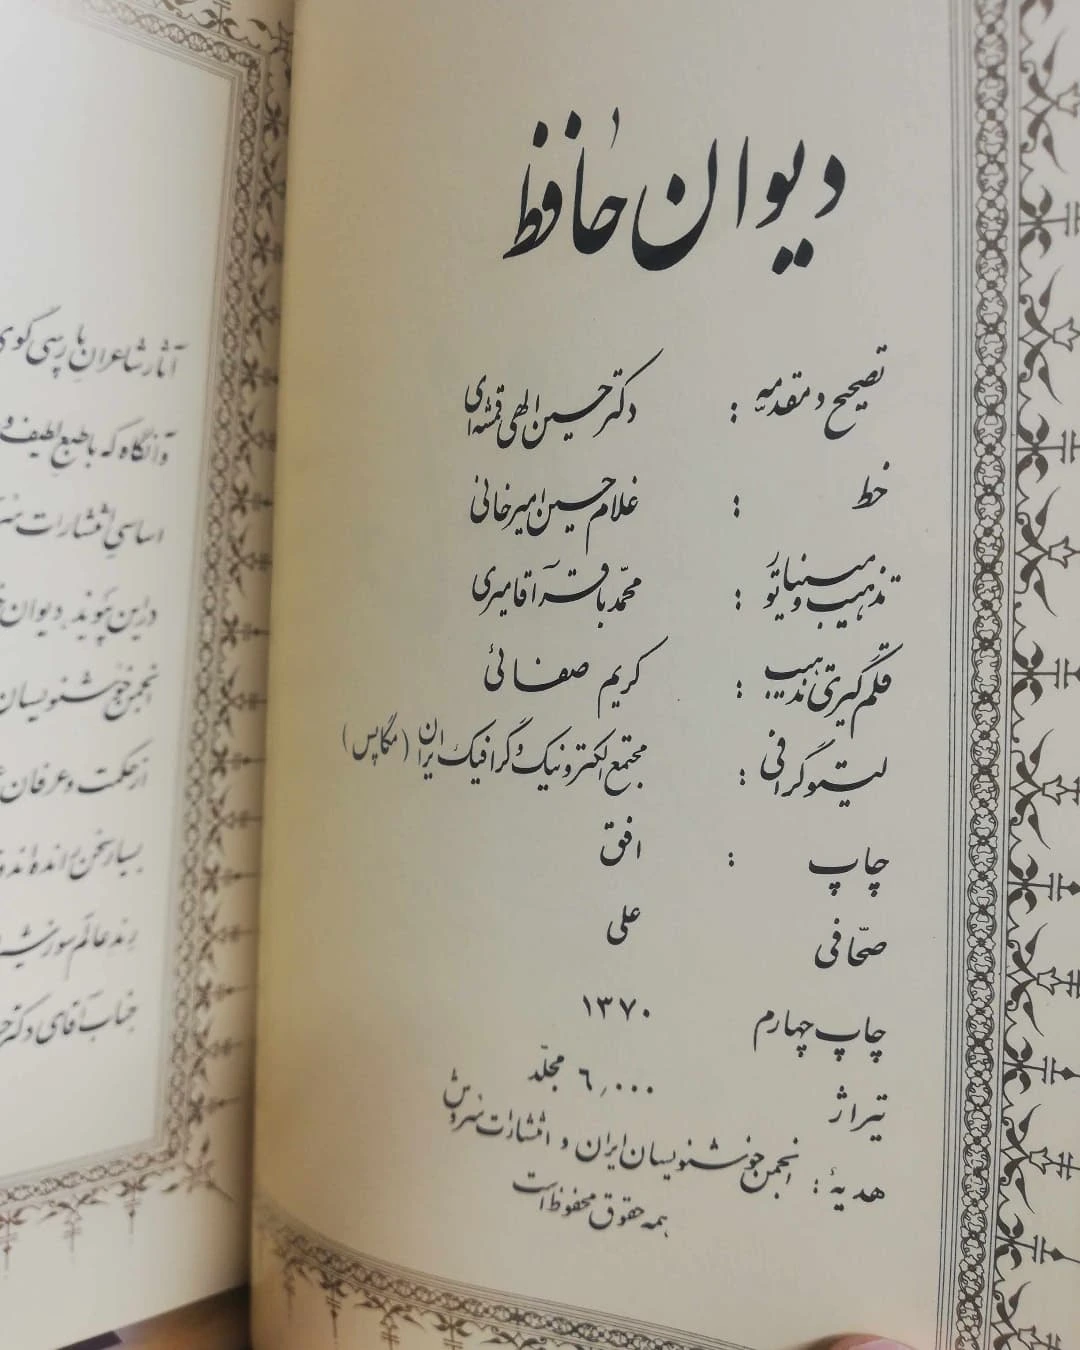 دیوان حافظ
تصحیح و مقدمه : دکتر حسین الهی قمشه‌ای
خط : غلامحسین امیرخانی
تذهیب و مینیاتور : محمّدباقر آقامیری
قلم‌گیری تذهیب : کریم صفائی
لیتوگرافی : مجتمع الکترونیک و گرافیک ایران (مگاپس)
چاپ : افق
صحّافی علی
چاپ چهارم ۱۳۷۰
تیراژ ۶٫۰۰۰ مجلّد
هدیهٔ : انجمن خوشنویسان ایران و انتشارات سروش
همه حقوق محفوظ است
آثار شاعران پارسی گوی
و آنگاه که با طبع لطیف و
اساسی انتشارات
در این پیوند، دیوان
انجمن خوشنویسان
از حکمت و عرفان
بسیار سخن رانده‌اند و
رند عالم سوز
جناب آقای دکتر